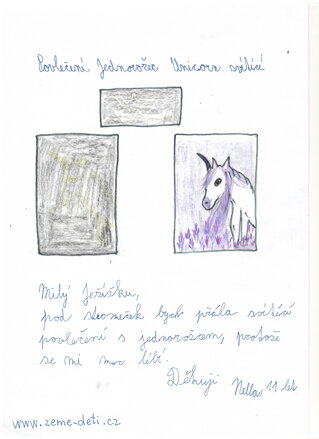 Povlečení Jednorožec Unicorn svítící
Milý Ježíšku,
pod stromeček bych přála svítící
povlečení s jednorožcem, protože
se mi moc líbí.
Děkuji Nella 11 let
www.zeme-deti.cz